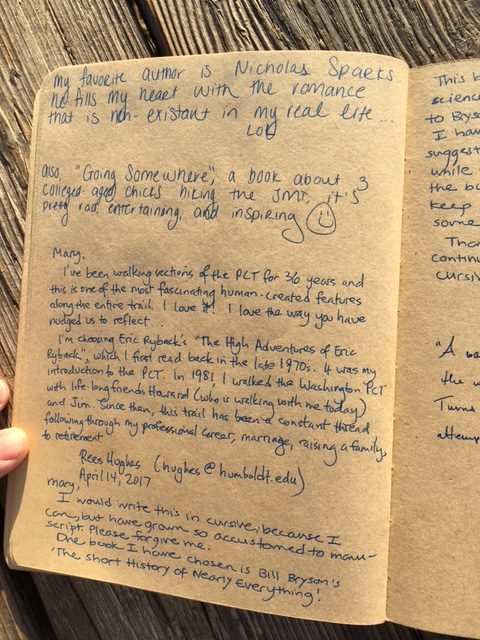 my favorite author is Nicholas Sparks.
he fills my heart with the romance
that is non-existant in my real life...
LOL
also, "Going Somewhere", a book about 3
colleged-aged chicks hiking the JMT, it's
pretty rad, entertaining, and inspiring
Mary,
I've been walking sections of the PCT for 36 years and
this is one of the most fascinating human-created features
along the entire trail. I love it! I love the way you have
nudged us to reflect.
I'm choosing Eric Ryback's "The High Adventures of Eric
Ryback", which I first read back in the late 1970s. It was my
introduction to the PCT. In 1981 I walked the Washington PCT
with life-long friends Howard (who is walking with me today)
and Jim. Since then, this trail has been a constant thread
following through my professional career, marriage, raising a family,
to retirement
Rees Hughes (hughes@humboldt.edu)
April 14, 2017
mary,
I would write this in cursive, because I
can, but have grown so accustomed to manu-
script. Please forgive me.
One book I have chosen is Bill Bryson's
'The Short History of Nearly Everything!
This b
science
to Bryson
I have
suggest
while
the bo
keep
some
Than
continu
cursiv
"A wa
the w
Turns
attemp